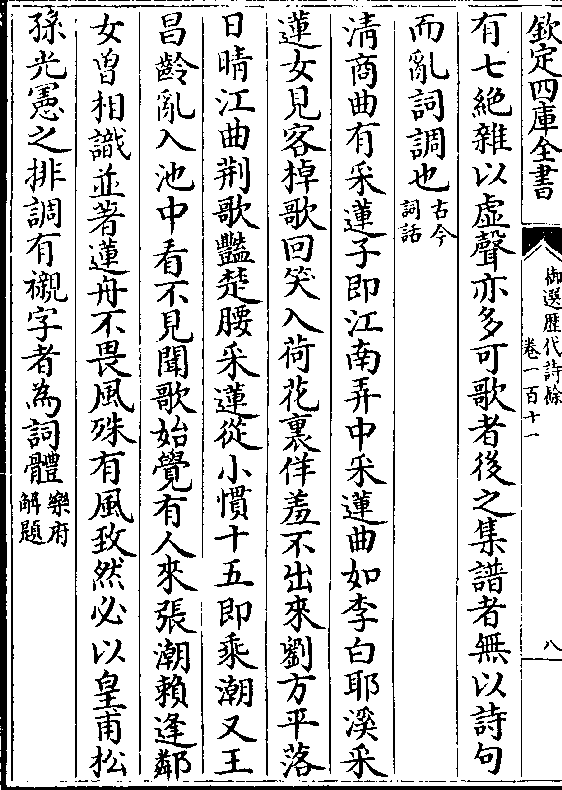 欽定四庫全書
御選歷代詩餘
卷一百十一
八
有七絶雜以虛聲亦多可歌者後之集譜者無以詩句
而亂詞調也古今
詞話
清商曲有采蓮子即江南弄中采蓮曲如李白耶溪采
蓮女見客棹歌回笑入荷花裏佯羞不出來劉方平落
日晴江曲荆歌豔楚腰采蓮從小慣十五即乘潮又王
昌齡亂入池中看不見聞歌始覺有人來張潮頼逢鄰
女曽相識並著蓮舟不畏風殊有風致然必以皇甫松
孫光憲之排調有襯字者為詞體樂府
解題